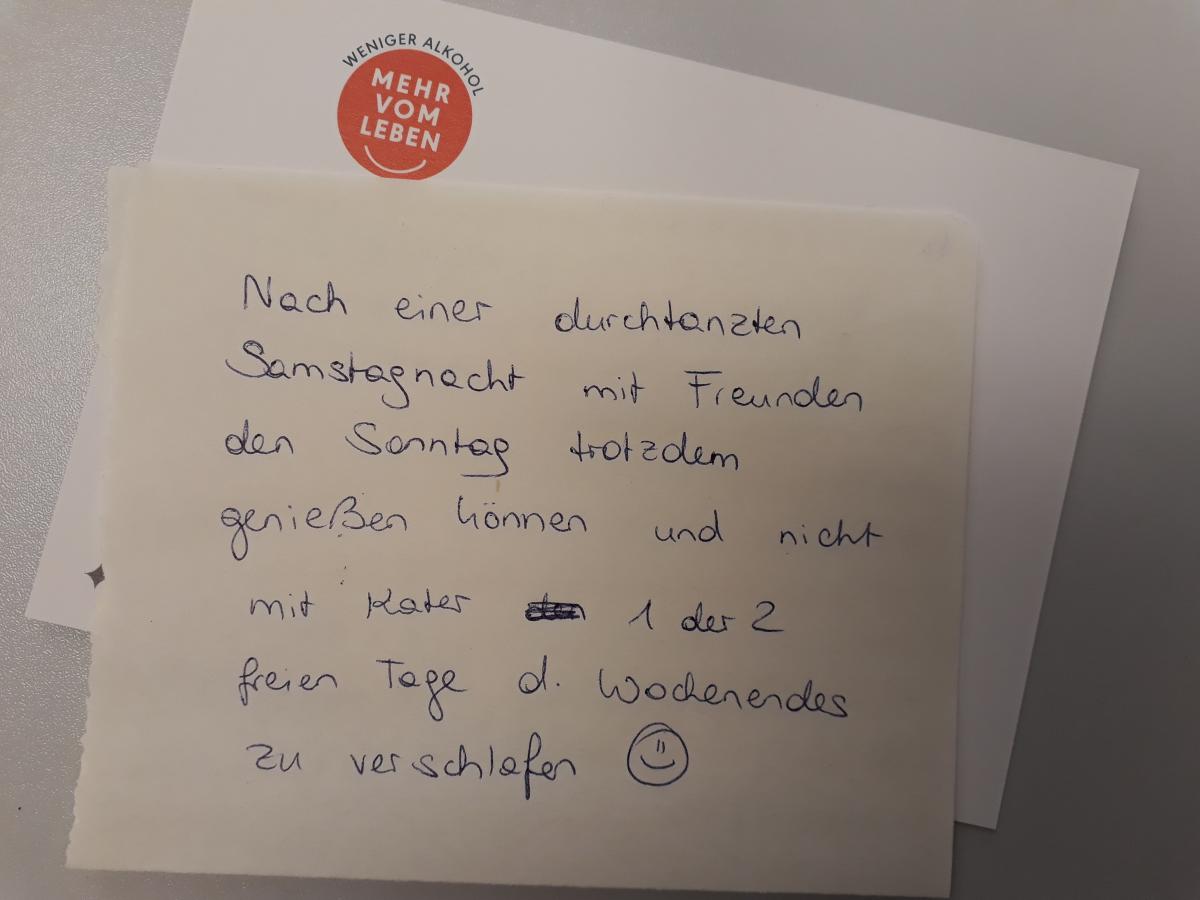 WENIGER ALKOHOL
MEHR
VOM
LEBEN
Nach einer durchtanzten
Samstagnacht mit Freunden
den Sonntag trotzdem
genießen können und nicht
mit Kater 1 der 2
freien Tage d. Wochenendes
zu verschlafen